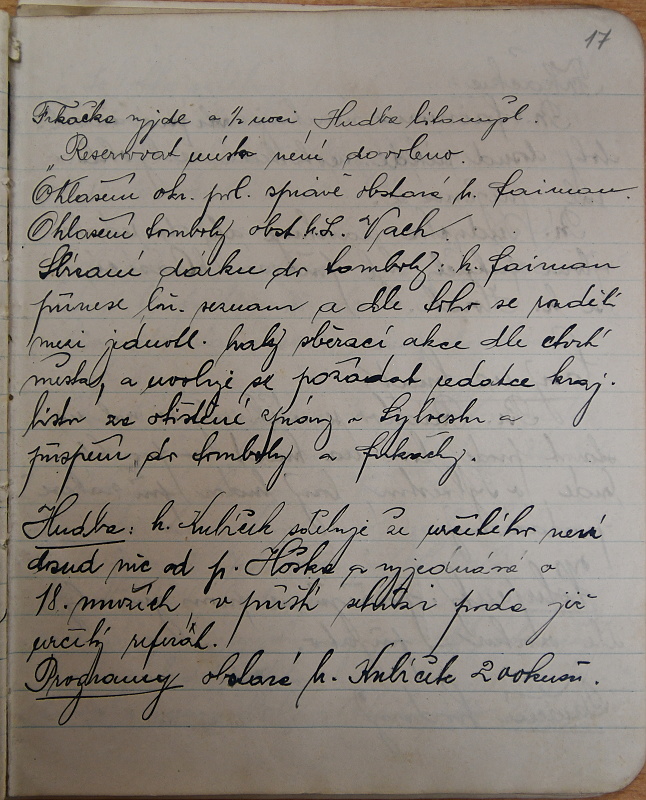 17
Frkačka vyjde o ½ noci, Hudba Litomyšl.
Reservovat místa není dovoleno.
Ohlášení okr. pol. správě obstará p. Faiman.
Ohlášení tomboly obst. p. L. Vach.
Sbírání dárků do tomboly: p. Faiman
přinese loň. seznam a dle toho se rozdělí
mezi jednotl. pány sběrací akce dle čtvrtí
města, a uvoluje se požádat redakce kraj.
listů za otištění zprávy o Sylvestru a
příspění do tomboly a frkačky.
Hudba: p. Kubíček sděluje že určitého neví
dosud nic od p. Hoška a vyjednává o
18. mužích, v příští schůzi podá již
určitý referát.
Programy obstará p. Kubíček 200 kusů.